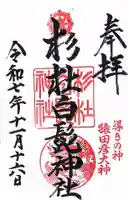 奉拝
導きの神
猿田彦大神
杉杜白髭神社
令和七年十一月十六日